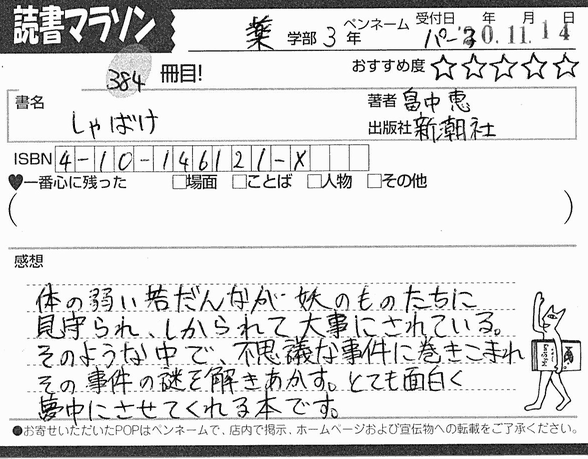 読書マラソン
薬 学部 3 年 ペンネーム 受付日 年 月 日
パーる '10.11.14
384 冊目! おすすめ度 ☆☆☆☆☆
書名 しゃばけ
著者 畠中 恵
出版社 新潮社
ISBN 4-10-146121-X
♥一番心に残った □場面 □ことば □人物 □その他
( )
感想
体の弱い若だんなが妖のものたちに
見守られ、しかられて大事にされている。
そのような中で、不思議な事件に巻きこまれ
その事件の謎を解きあかす。とても面白く
夢中にさせてくれる本です。
●お寄せいただいたPOPはペンネームで、店内で掲示、ホームページおよび宣伝物への転載をご了承ください。